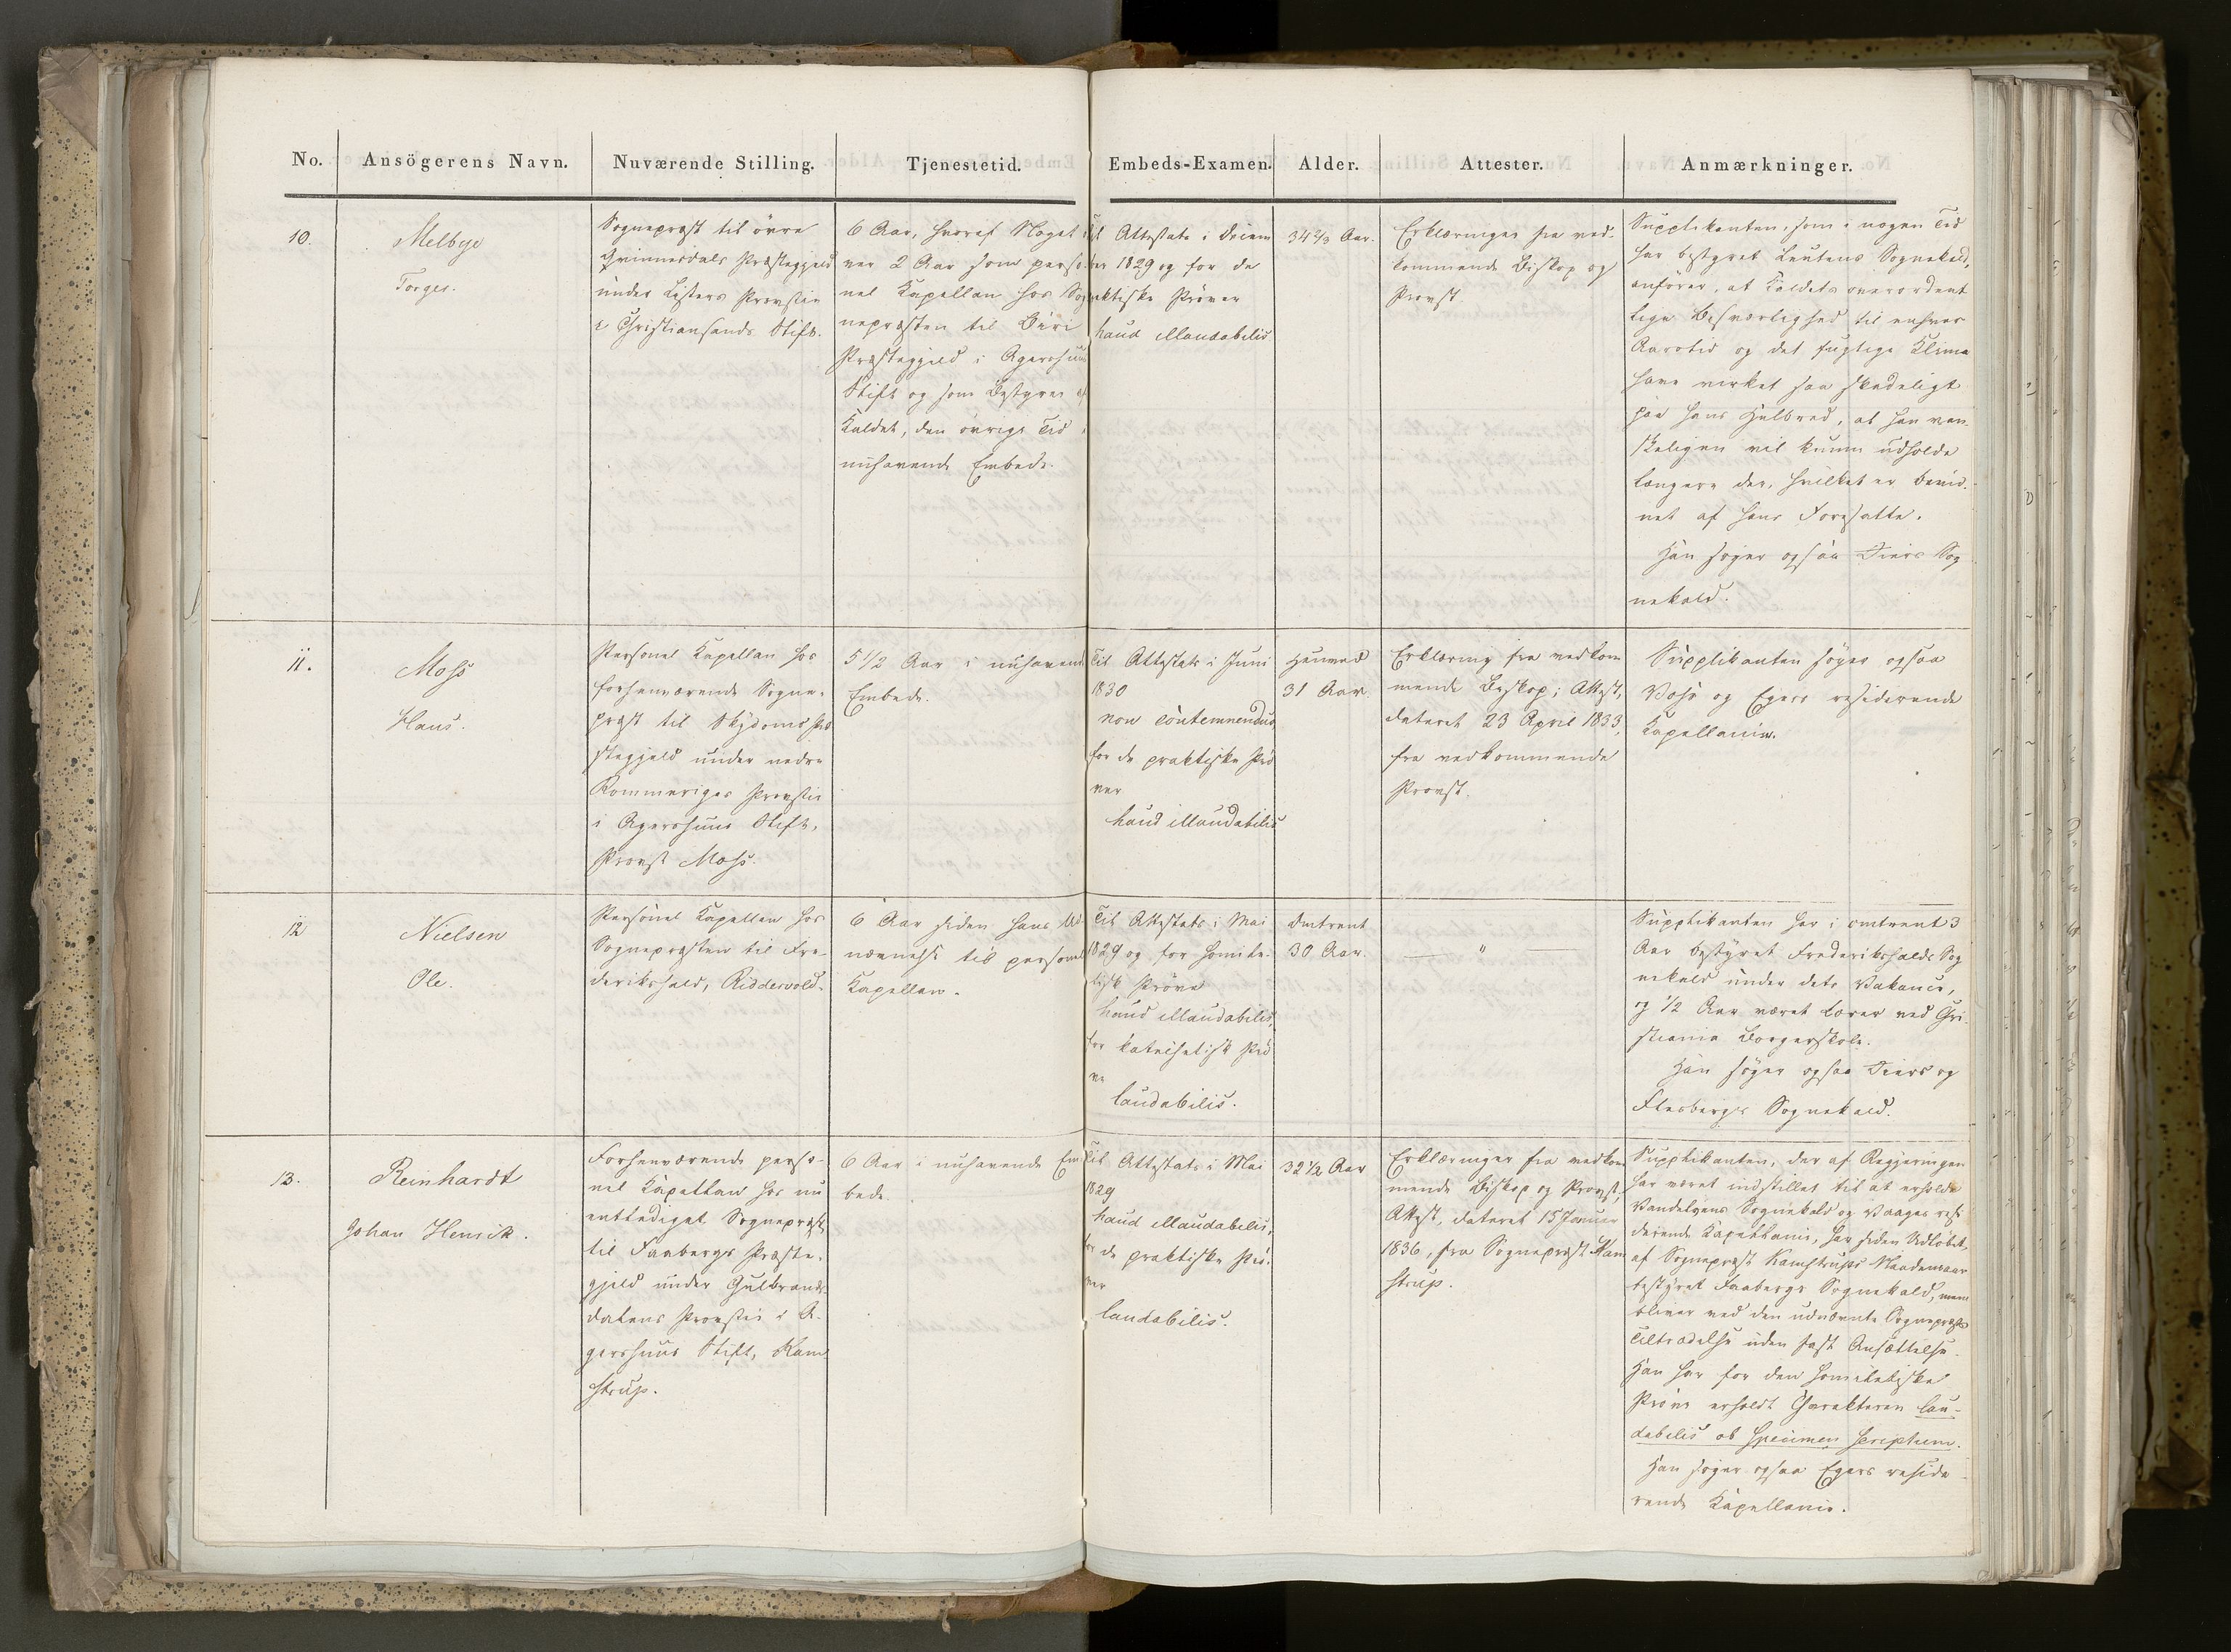 No.
Ansögerens Navn.
Nuværende Stilling.
Tjenestetid.
Embeds-Examen.
Alder.
Attester.
Anmærkninger.
10.
Melbye
Torger.
Sognepræst til övre
Qvinnesdals Præstegjeld
under Listers Provstie
i Christiansands Stift.
6 Aar, hvoraf Noget
ver 2 Aar som perso-
nel Kapellan hos Sog
nepræsten til Biri
Præstegjeld i Agershuus
Stift og som Bestyrer af
Kaldet, den övrige Tid i
nuhavende Embede.
Til Attestats i Decem
ber 1829 og for de
praktiske Pröver
haud illaudabilis
34 2/3 Aar.
Erklæringer fra ved-
kommende Biskop og
Provst.
Supplikanten, som i nogen Tid
har bestyret Sognekald,
anförer, at Kaldets overordent
lige Besværlighed til enhver
Aarstid og det fugtige Klima
have virket saa skadeligt
paa hans Helbred, at han van-
skeligen vil kunne udholde
længere der, hvilket er bevid-
net af hans Foresatte.
Han söger ogsaa Sog
nekald.
11.
Moss
Hans.
Personel Kapellan hos
forhenværende Sogne-
præst til Præ
stegjeld under nedre
Rommeriges Provstie
i Agershuus Stift,
Provst Moss.
5 1/2 Aar i nuhavende
Embede.
Til Attestats i Juni
1830
non contemnendus,
for de praktiske Prö
ver
haud illaudabilis
Henved
31 Aar.
Erklæring fra vedkom
mende Biskop; Attest,
dateret 23 April 1833,
fra vedkommende
Provst.
Supplikanten söger ogsaa
Voss og Egers residerende
Kapellanier.
12
Nielsen
Ole.
Personel Kapellan hos
Sognepræsten til Fre-
derikshald, Riddervold.
6 Aar siden hans Ud
nævnelse til personel
Kapellan.
Til Attestats i Mai
1829 og for homile-
tisk Pröve
haud illaudabilis,
for katechetisk Prö
ve
laudabilis.
Omtrent
30 Aar.
"
Supplikanten har i omtrent 3
Aar bestyret Frederikshalds Sog
nekald under dets Vakance,
og 1/2 Aar været Lærer ved Chri
stiania Borgerskole.
Han söger ogsaa og
Flesbergs Sognekald.
13.
Reinhardt
Johan Henrik.
Forhenværende perso-
nel Kapellan hos nu
entlediget Sognepræst
til Faabergs Præste-
gjeld under Gulbrands
dalens Provstie i A-
gershuus Stift, Kam
strup.
6 Aar i nuhavende Em
bede.
Til Attestats i Mai
1829
haud illaudabilis,
for de praktiske Prö-
ver
laudabilis.
32 1/2 Aar
Erklæringer fra vedkom
mende Biskop og Provst,
Attest, dateret 15 Januar
1836, fra Sognepræst Kam
strup.
Supplikanten, der af Regjeringen
har været indstillet til at erholde
Vandelvens Sognekald og Vaages resi
derende Kapellanie, har siden Udlöbet
af Sognepræst Kamstrups Naadensaar
bestyret Faabergs Sognekald, men
bliver ved den udnævnte Sognepræsts
Tiltrædelse uden fast Ansættelse.
Han har for den homiletiske
Pröve erholdt Charakteren lau-
dabilis ob specimen scriptum.
Han söger ogsaa Egers reside
rende Kapellanie.